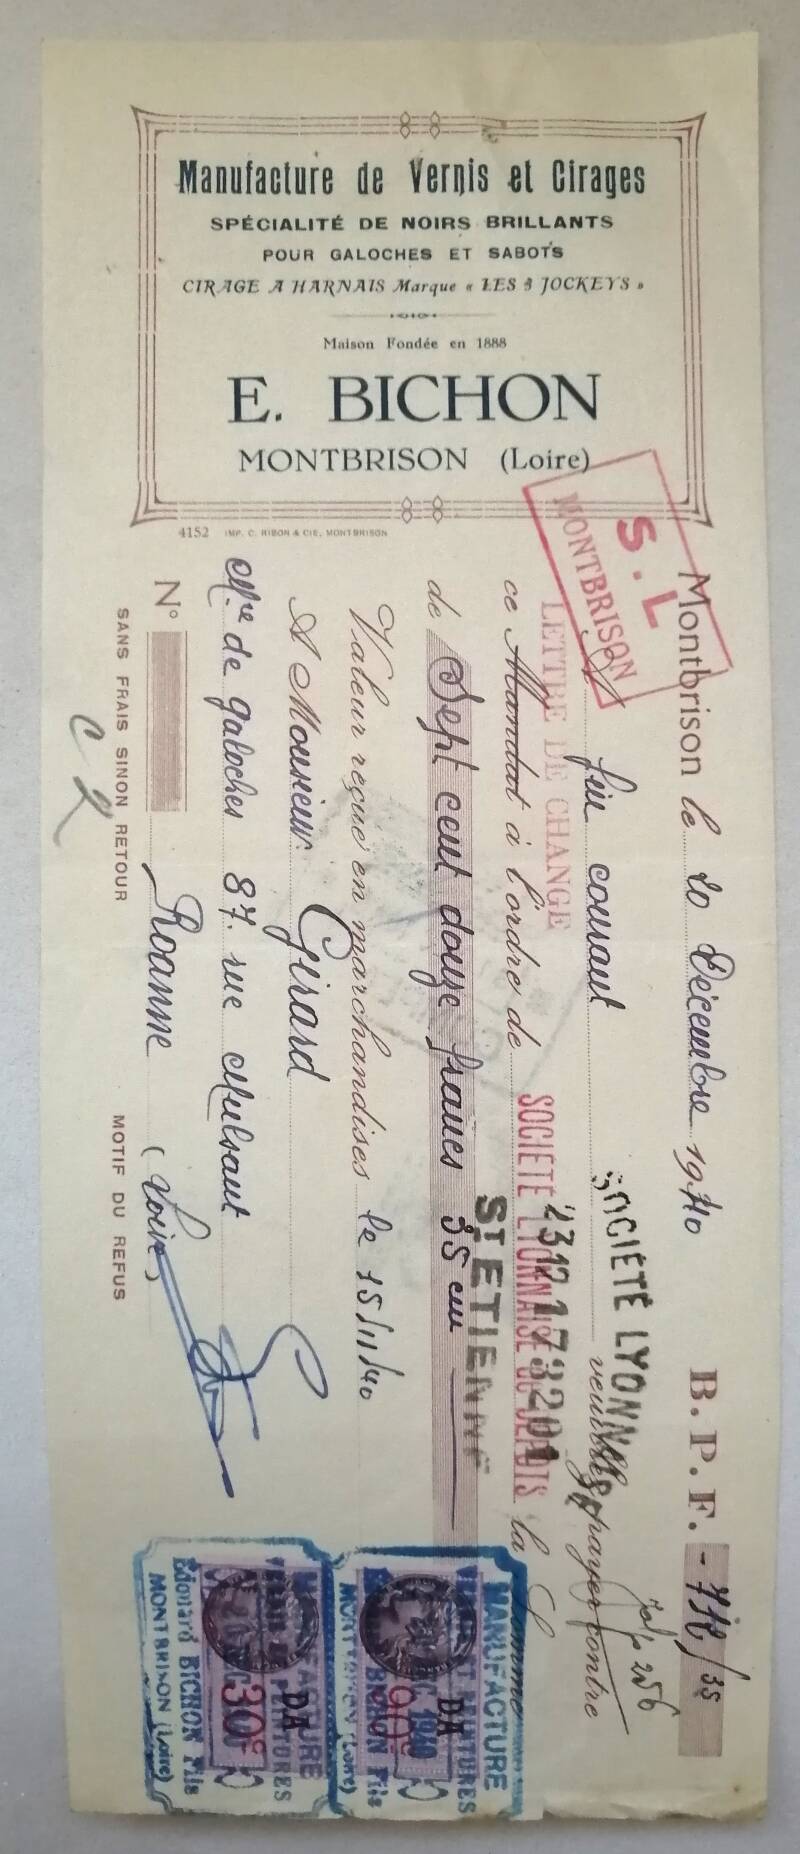 Manufacture de Vernis et Cirages
SPÉCIALITÉ DE NOIRS BRILLANTS
POUR GALOCHES ET SABOTS
CIRAGE A HARNAIS Marque « LES 3 JOCKEYS »
Maison Fondée en 1888
E. BICHON
MONTBRISON (Loire)
4152 IMP. C. RIBON & CIE, MONTBRISON
S. L
MONTBRISON
Montbrison le 20 Décembre 1940 B. P. F. - 712/35
A fin courant veuillez payer contre
SOCIÉTÉ LYONNAISE
LETTRE DE CHANGE
ce Mandat à l'ordre de SOCIÉTÉ LYONNAISE DE DÉPOTS la Somme
ST ETIENNE
de Sept cent douze francs 35 cm
Valeur reçue en marchandises le 15/11/40
A Monsieur Girard
Mre de galoches 87. rue Mulsant
No Roanne (Loire)
SANS FRAIS SINON RETOUR MOTIF DU REFUS
MANUFACTURE
VERNIS ET PEINTURES
BICHON Fils
MONTBRISON (Loire)
DA
1940
90c
MANUFACTURE
VERNIS ET PEINTURES
Edouard BICHON Fils
MONTBRISON (Loire)
DA
30c